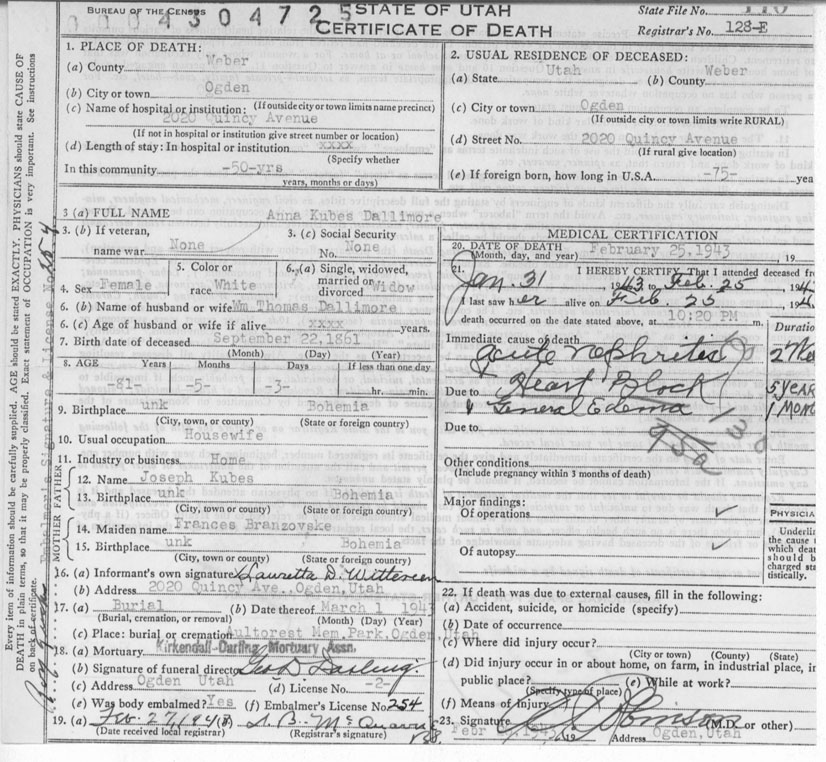 BUREAU OF THE CENSUS
STATE OF UTAH
State File No. 110
0004304725
CERTIFICATE OF DEATH
Registrar's No. 128-E
1. PLACE OF DEATH:
(a) County Weber
(b) City or town Ogden
(If outside city or town limits name precinct)
(c) Name of hospital or institution:
2020 Quincy Avenue
(If not in hospital or institution give street number or location)
(d) Length of stay: In hospital or institution xxxx
(Specify whether
In this community -50-yrs
years, months or days)
2. USUAL RESIDENCE OF DECEASED:
(a) State Utah (b) County Weber
(c) City or town Ogden
(If outside city or town limits write RURAL)
(d) Street No. 2020 Quincy Avenue
(If rural give location)
(e) If foreign born, how long in U.S.A. -75- yea
3 (a) FULL NAME Anna Kubes Dallimore
3. (b) If veteran,
name war None
3. (c) Social Security
No. None
4. Sex Female
5. Color or
race White
6. (a) Single, widowed,
married or
divorced Widow
6. (b) Name of husband or wife Wm Thomas Dallimore
6. (c) Age of husband or wife if alive xxxx years.
7. Birth date of deceased September 22, 1861
(Month) (Day) (Year)
8. AGE Years Months Days If less than one day
-81- -5- -3- hr. min.
9. Birthplace unk Bohemia
(City, town, or county) (State or foreign country)
10. Usual occupation Housewife
11. Industry or business Home
FATHER
12. Name Joseph Kubes
13. Birthplace unk Bohemia
(City, town or county) (State or foreign country)
MOTHER
14. Maiden name Frances Branzovske
15. Birthplace unk Bohemia
(City, town or county) (State or foreign country)
16. (a) Informant's own signature Lauretta D.
(b) Address 2020 Quincy Ave., Ogden, Utah
17. (a) Burial (b) Date thereof March 1 1943
(Burial, cremation, or removal) (Month) (Day) (Year)
(c) Place: burial or cremation Aultorest Mem. Park, Ogden, Utah
18. (a) Mortuary Kirkendall-Darling Mortuary Assn.
(b) Signature of funeral director Geo D Darling
(c) Address Ogden Utah (d) License No. -2-
(e) Was body embalmed? Yes (f) Embalmer's License No. 254
19. (a) Feb 27, 194 (b)
(Date received local registrar) (Registrar's signature)
MEDICAL CERTIFICATION
20. DATE OF DEATH February 25, 1943
(Month, day, and year) , 19
21. I HEREBY CERTIFY That I attended deceased fr
Jan. 31 1943 to Feb. 25 194
I last saw her alive on Feb. 25 194
death occurred on the date stated above, at 10:20 PM m.
Duratio
Immediate cause of death
acute nephritis 2
Due to Heart Block 5 year
& General Edema 1 mon
Due to
130
95a
Other conditions
(Include pregnancy within 3 months of death)
Major findings:
Of operations ✓
Of autopsy ✓
PHYSICIA
Underli
the cause t
which deat
should b
charged sta
tistically.
22. If death was due to external causes, fill in the following:
(a) Accident, suicide, or homicide (specify)
(b) Date of occurrence
(c) Where did injury occur?
(City or town) (County) (State)
(d) Did injury occur in or about home, on farm, in industrial place, in
public place? (e) While at work?
(Specify type of place)
(f) Means of Injury
23. Signature (M.D. or other)
Febr 1943 19 Address Ogden, Utah
Every item of information should be carefully supplied. AGE should be stated EXACTLY. PHYSICIANS should state CAUSE OF
DEATH in plain terms, so that it may be properly classified. Exact statement of OCCUPATION is very important. See instructions
on back of certificate.
Embalmer's Signature & License No. 254